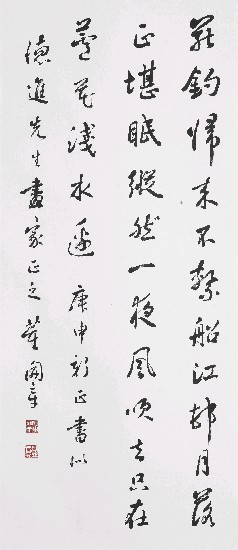 罷釣歸來不繫船江邨月落
正堪眠縱然一夜風吹去只在
蘆花淺水邊 庚申新正書似
德進先生畫家正之 董開章